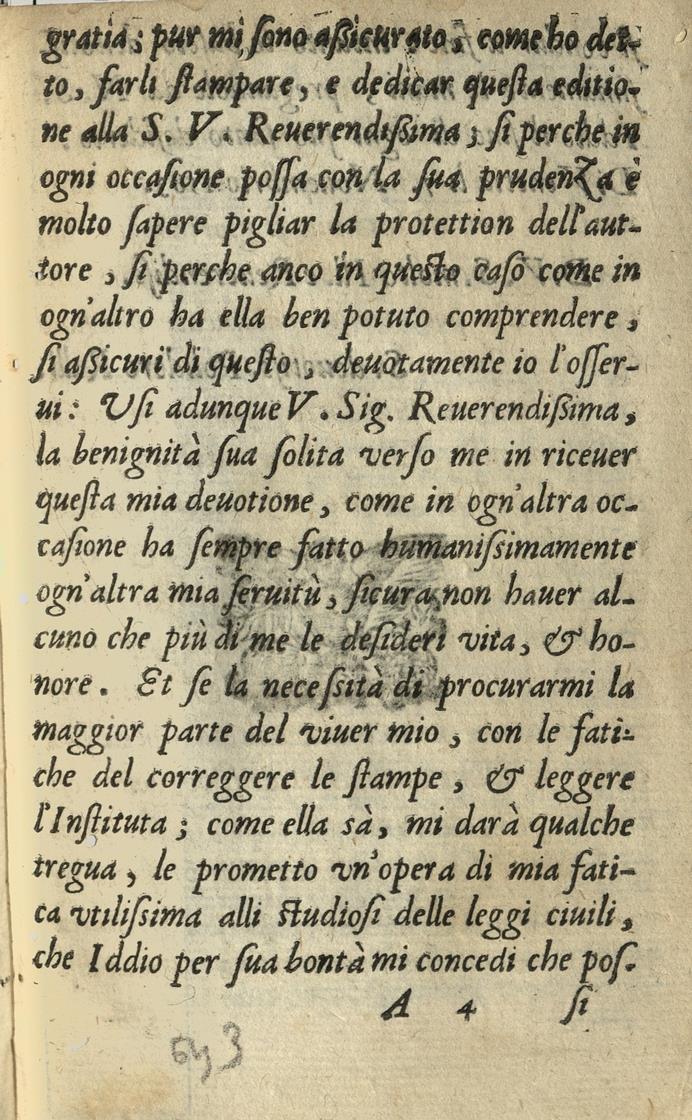 gratia; pur mi ſono aßicurato, come ho det-
to, farli ſtampare, e dedicar queſta editio-
ne alla S. V. Reuerendißima; ſi perche in
ogni occaſione poſſa con la ſua prudenZa è
molto ſapere pigliar la protettion dell'aut-
tore, ſi perche anco in queſto caſo come in
ogn'altro ha ella ben potuto comprendere,
ſi aßicuri di queſto, deuotamente io l'oſſer-
ui: Vſi adunque V. Sig. Reuerendißima,
la benignità ſua ſolita verſo me in riceuer
queſta mia deuotione, come in ogn'altra oc-
caſione ha ſempre fatto humaniſsimamente
ogn'altra mia ſeruitù, ſicura non hauer al-
cuno che più di me le deſideri vita, & ho-
nore. Et ſe la neceſsità di procurarmi la
maggior parte del viuer mio, con le fati-
che del correggere le ſtampe, & leggere
l'Inſtituta; come ella sà, mi darà qualche
tregua, le prometto vn'opera di mia fati-
ca vtiliſsima alli ſtudioſi delle leggi ciuili,
che Iddio per ſua bontà mi concedi che poſ-
A 4 ſi